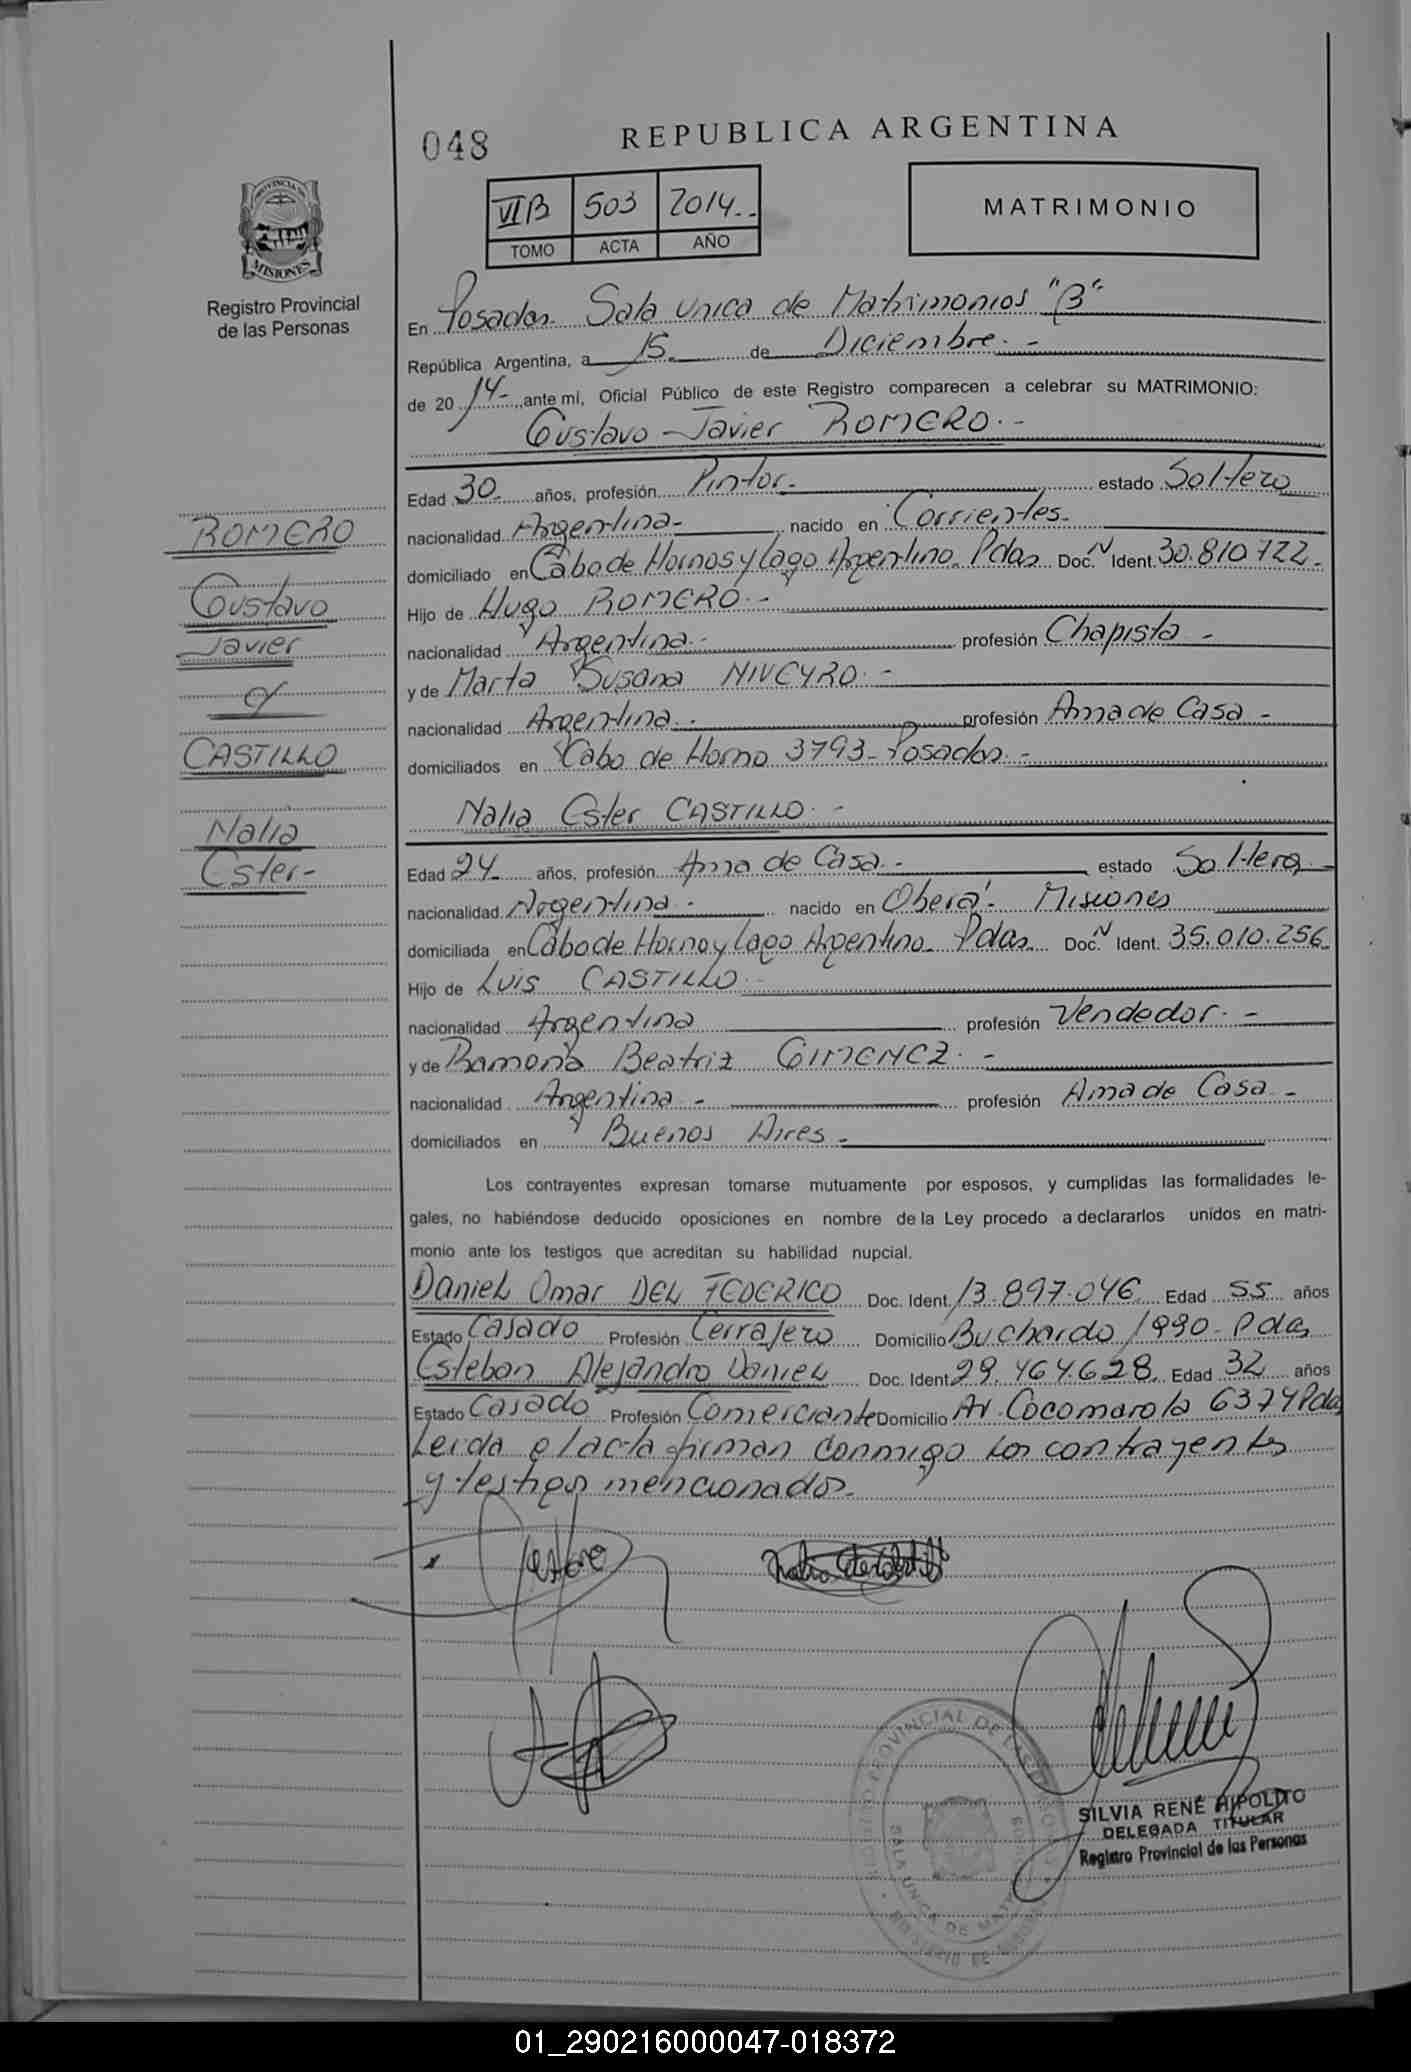 048
REPUBLICA ARGENTINA
VI B 503 2014..
TOMO ACTA AÑO
MATRIMONIO
PROVINCIA DE
MISIONES
Registro Provincial
de las Personas
En Posadas Sala Unica de Matrimonios "B"
República Argentina, a 15 de Diciembre. -
de 20 14- ante mí, Oficial Público de este Registro comparecen a celebrar su MATRIMONIO:
Gustavo Javier ROMERO. -
Edad 30 años, profesión Pintor. estado Soltero
nacionalidad Argentina- nacido en Corrientes.
domiciliado en Cabo de Hornos y Lago Argentino. Pdas Doc. N Ident. 30.810722.
Hijo de Hugo ROMERO. -
nacionalidad Argentina. profesión Chapista -
y de Marta Susana NIVEYRO. -
nacionalidad Argentina. - profesión Ama de Casa -
domiciliados en Cabo de Horno 3793- Posadas. -
Nalia Ester CASTILLO. -
Edad 24 años, profesión Ama de Casa. - estado Soltera -
nacionalidad Argentina. nacido en Oberá. Misiones
domiciliada en Cabo de Horno y Lago Argentino. Pdas Doc. N Ident. 35.010.256
Hijo de Luis CASTILLO.
nacionalidad Argentina profesión Vendedor. -
y de Ramona Beatriz GIMENEZ. -
nacionalidad Argentina - profesión Ama de Casa -
domiciliados en Buenos Aires -
Los contrayentes expresan tomarse mutuamente por esposos, y cumplidas las formalidades le-
gales, no habiéndose deducido oposiciones en nombre de la Ley procedo a declararlos unidos en matri-
monio ante los testigos que acreditan su habilidad nupcial.
Daniel Omar DEL FEDERICO Doc. Ident. 13.897.046 Edad 55 años
Estado Casado Profesión Cerrajero Domicilio Buchardo 1990- Pdas
Esteban Alejandro Daniel Doc. Ident. 29.464.628. Edad 32 años
Estado Casado Profesión Comerciante Domicilio Av. Cocomarola 6374 Pdas
Leida el acta firman conmigo los contrayentes
y testigos mencionados.
ROMERO
Gustavo
Javier
c/
CASTILLO
Nalia
Ester-
REGISTRO PROVINCIAL DE LAS PERSONAS
SALA UNICA DE MATRIMONIOS
SILVIA RENÉ HIPOLITO
DELEGADA TITULAR
Registro Provincial de las Personas
01_290216000047-018372